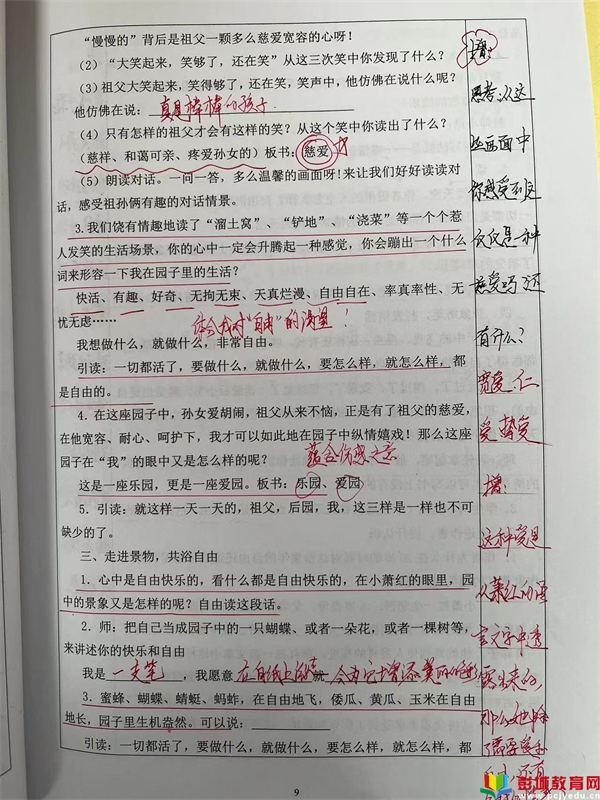 “慢慢的”背后是祖父一颗多么慈爱宽容的心呀！
（2）“大笑起来，笑够了，还在笑”从这三次笑中你发现了什么？
（3）祖父大笑起来，笑得够了，还在笑，笑声中，他仿佛在说什么呢？
他仿佛在说：真是棒棒的孩子
（4）只有怎样的祖父才会有这样的笑？从这个笑中你读出了什么？
（慈祥、和蔼可亲、疼爱孙女的）板书：慈爱
（5）朗读对话。一问一答，多么温馨的画面呀！来让我们好好读读对
话，感受祖孙俩有趣的对话情景。
3.我们饶有情趣地读了“溜土窝”、“铲地”、“浇菜”等一个个惹
人发笑的生活场景，你的心中一定会升腾起一种感觉，你会蹦出一个什么
词来形容一下我在园子里的生活？
快活、有趣、好奇、无拘无束、天真烂漫、自由自在、率真率性、无
忧无虑……
体会我对“自由”的渴望！
我想做什么，就做什么，非常自由。
引读：一切都活了，要做什么，就做什么，要怎么样，就怎么样，都
是自由的。
4．在这座园子中，孙女爱胡闹，祖父从来不恼，正是有了祖父的慈爱，
在他宽容、耐心、呵护下，我才可以如此地在园子中纵情嬉戏！那么这座
园子在“我”的眼中又是怎么样的呢？
蕴含伤感之意
这是一座乐园，更是一座爱园。板书：乐园、爱园
5．引读：就这样一天一天的，祖父，后园，我，这三样是一样也不可
缺少的了。
三、走进景物，共浴自由
1．心中是自由快乐的，看什么都是自由快乐的，在小萧红的眼里，园
中的景象又是怎样的呢？自由读这段话。
2．师：把自己当成园子中的一只蝴蝶、或者一朵花，或者一棵树等，
来讲述你的快乐和自由
我是一支笔，我愿意在白纸上
3．蜜蜂、蝴蝶、蜻蜓、蚂蚱，在自由地飞，倭瓜、黄瓜、玉米在自由
地长，园子里生机盎然。可以说：
引读：一切都活了，要做什么，就做什么，要怎么样，就怎么样，都
9
增：
思考：从这
些画面中
你感受到这
仅仅是一种
慈爱吗？还
有什么？
宽爱、仁
爱、挚爱
增：
这种爱是
从萧红的语
言文字中透
露出来的，
那么她除
彭城教育网
www.pcjyedu.cn